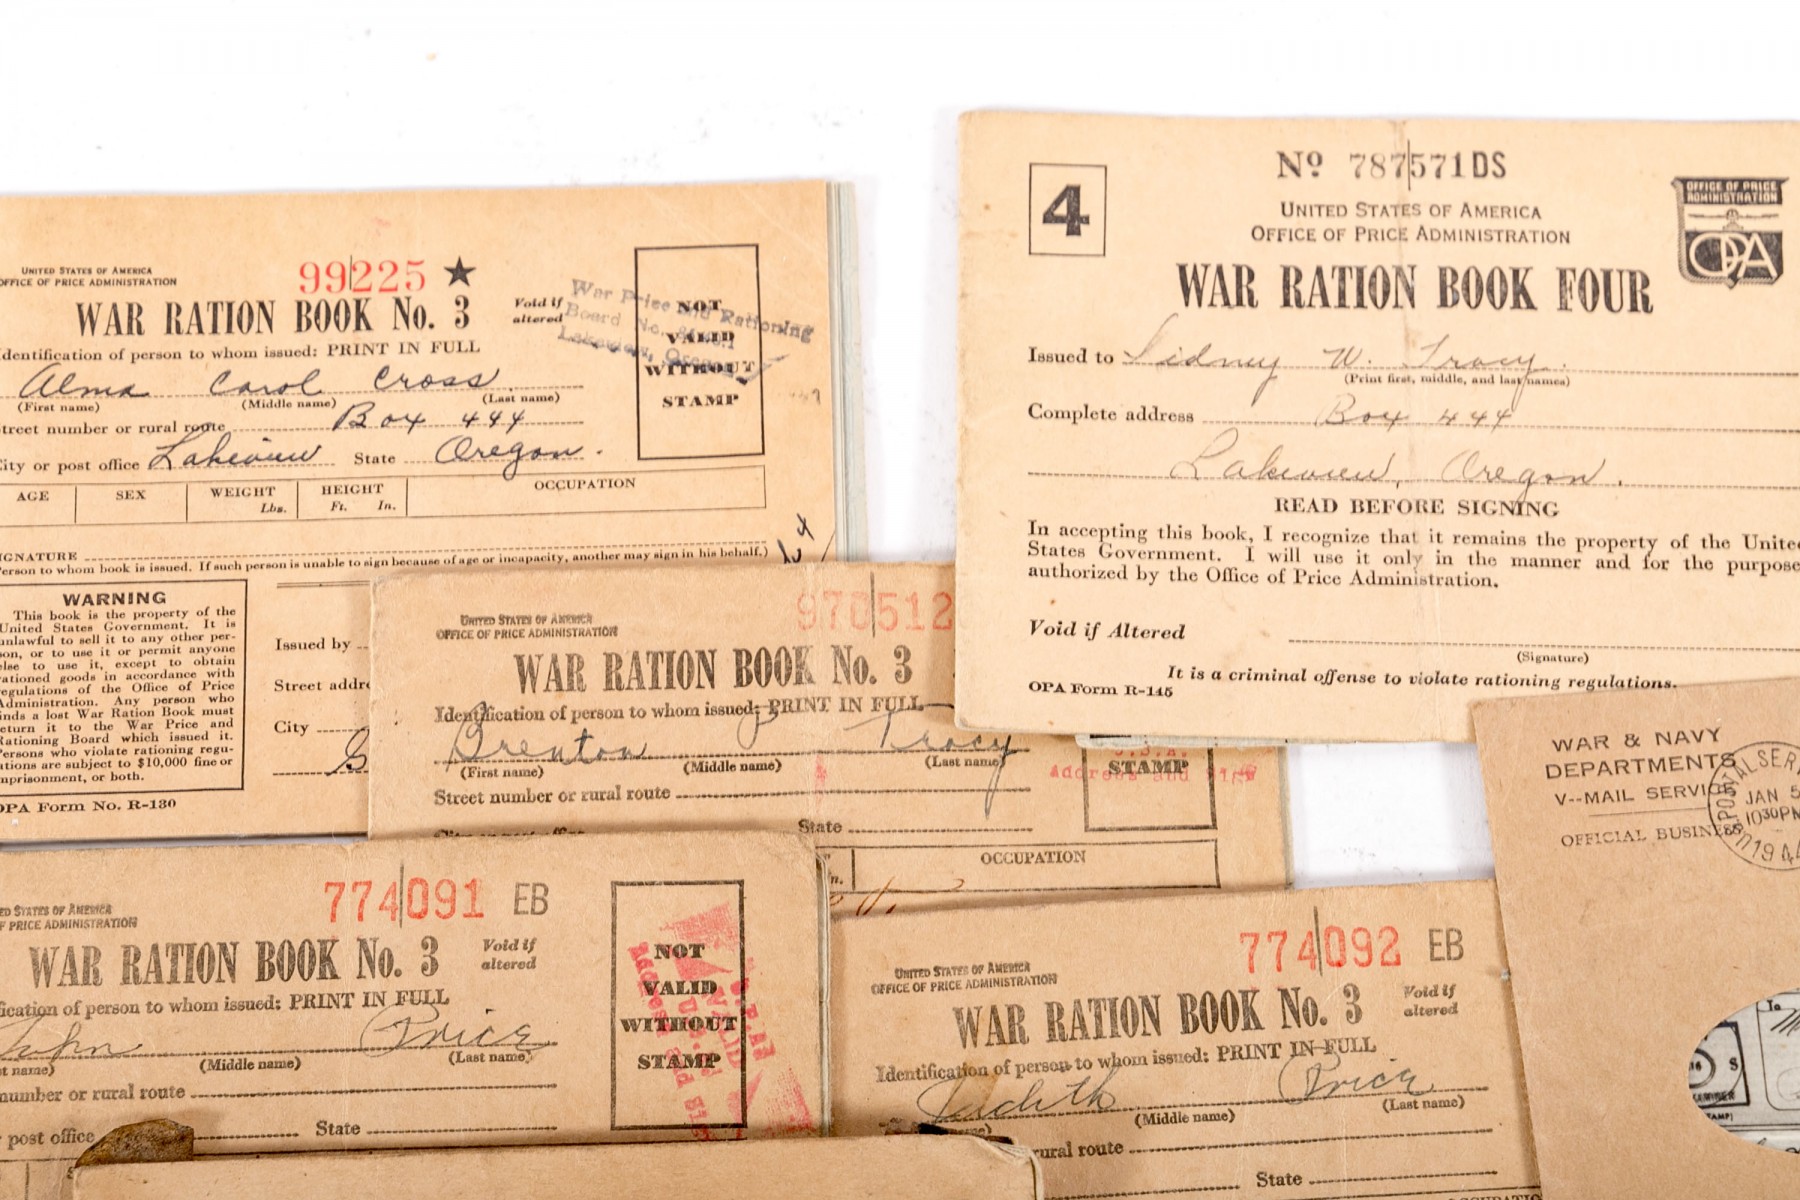 UNITED STATES OF AMERICA
OFFICE OF PRICE ADMINISTRATION
99225 ★
WAR RATION BOOK No. 3
Void if
altered
Identification of person to whom issued: PRINT IN FULL
Alma Carol Cross
(First name) (Middle name) (Last name)
Street number or rural route Box 444
City or post office Lakeview State Oregon.
War Price and Rationing
Board No.
Lakeview, Oregon
NOT
VALID
WITHOUT
STAMP
AGE SEX WEIGHT Lbs. HEIGHT Ft. In. OCCUPATION
SIGNATURE
(Person to whom book is issued. If such person is unable to sign because of age or incapacity, another may sign in his behalf.)
WARNING
This book is the property of the
United States Government. It is
unlawful to sell it to any other per-
son, or to use it or permit anyone
else to use it, except to obtain
rationed goods in accordance with
regulations of the Office of Price
Administration. Any person who
finds a lost War Ration Book must
return it to the War Price and
Rationing Board which issued it.
Persons who violate rationing regu-
lations are subject to $10,000 fine or
imprisonment, or both.
OPA Form No. R-130
Issued by
Street addr
City
4
No 787571DS
UNITED STATES OF AMERICA
OFFICE OF PRICE ADMINISTRATION
OFFICE OF PRICE
ADMINISTRATION
OPA
WAR RATION BOOK FOUR
Issued to Sidney W. Tracy.
(Print first, middle, and last names)
Complete address Box 444
Lakeview, Oregon.
READ BEFORE SIGNING
In accepting this book, I recognize that it remains the property of the United
States Government. I will use it only in the manner and for the purpose
authorized by the Office of Price Administration.
Void if Altered
(Signature)
It is a criminal offense to violate rationing regulations.
OPA Form R-145
UNITED STATES OF AMERICA
OFFICE OF PRICE ADMINISTRATION
970512
WAR RATION BOOK No. 3
Identification of person to whom issued: PRINT IN FULL
Brenton J Tracy
(First name) (Middle name) (Last name)
Street number or rural route
City or post office State
U.S.A.
Address and Sign
STAMP
OCCUPATION
WAR & NAVY
DEPARTMENTS
V--MAIL SERVICE
OFFICIAL BUSINESS
JAN 5
1030PM
1944
774091 EB
UNITED STATES OF AMERICA
OFFICE OF PRICE ADMINISTRATION
WAR RATION BOOK No. 3
Void if
altered
ification of person to whom issued: PRINT IN FULL
John Price
(Middle name) (Last name)
number or rural route
post office State
NOT
VALID
WITHOUT
STAMP
774092 EB
UNITED STATES OF AMERICA
OFFICE OF PRICE ADMINISTRATION
WAR RATION BOOK No. 3
Void if
altered
Identification of person to whom issued: PRINT IN FULL
Judith Price
(Middle name) (Last name)
rural route
State
To
S